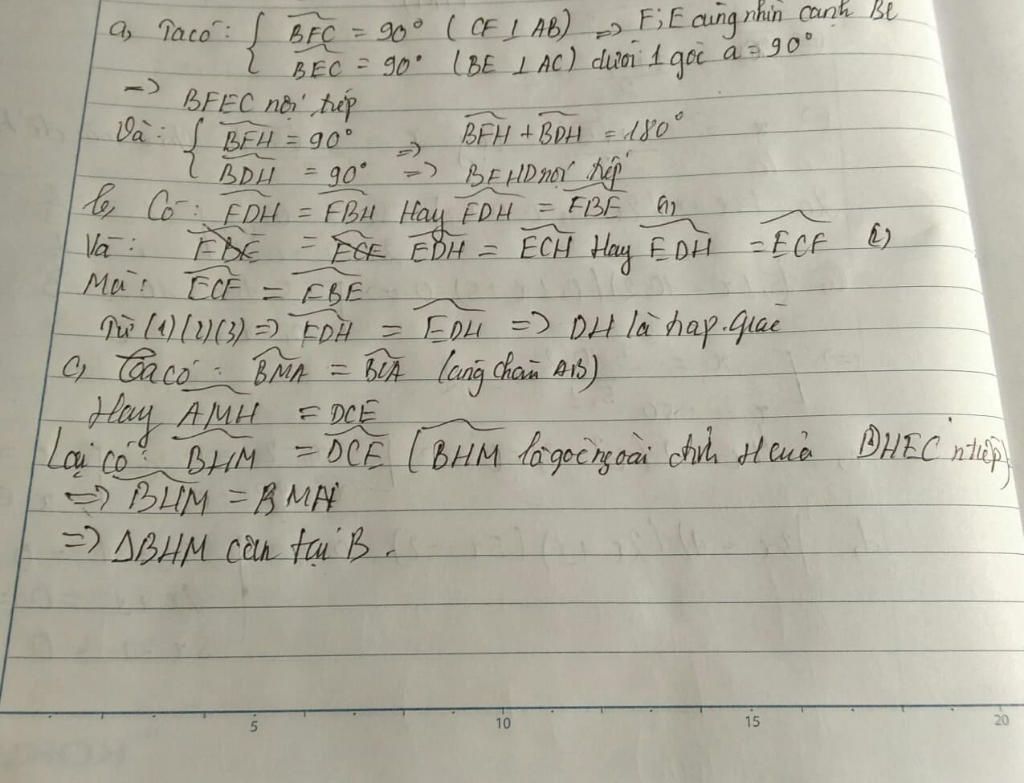 a, Ta có: { BFC = 90° ( CF ⊥ AB) => F; E cùng nhìn cạnh BC
BEC = 90° (BE ⊥ AC) dưới 1 góc a = 90°
=> BFEC nội tiếp
Và: { BFH = 90° => BFH + BDH = 180°
BDH = 90° => BFHD nội tiếp
b, Có: FDH = FBH Hay FDH = FBE (1)
Và: EDH = ECH Hay EDH = ECF (2)
Mà: ECF = FBE
Từ (1)(2)(3) => FDH = EDH => DH là p.giác
c, Ta có: BMA = BCA (cùng chắn AB)
Hay AMH = DCE
Lại có: BHM = DCE (BHM là góc ngoài đỉnh H của DHEC n.tiếp)
=> BHM = BMA
=> ΔBHM cân tại B.
5 10 15 20